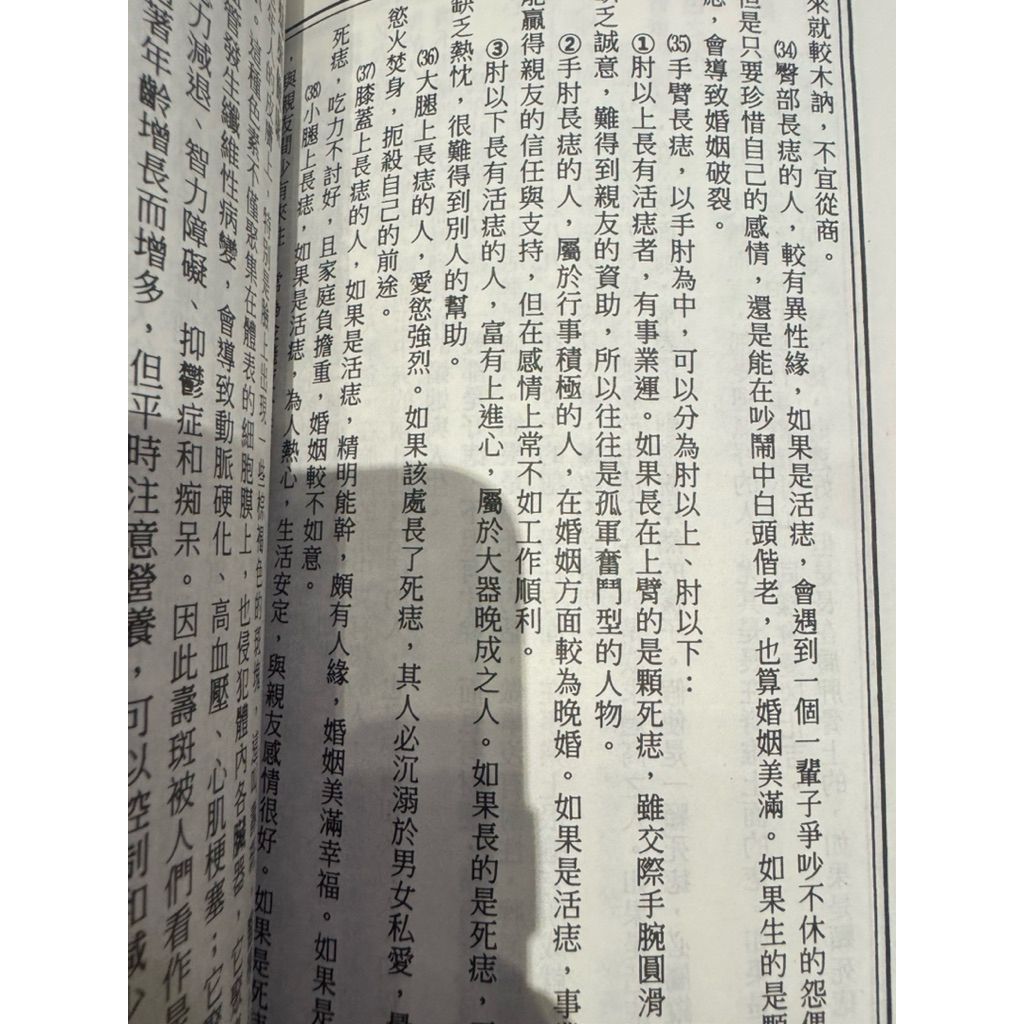 來就較木訥，不宜從商。
㉞臀部長痣的人，較有異性緣，如果是活痣，會遇到一個一輩子爭吵不休的怨偶
但是只要珍惜自己的感情，還是能在吵鬧中白頭偕老，也算婚姻美滿。如果生的是顆
痣，會導致婚姻破裂。
㉟手臂長痣，以手肘為中，可以分為肘以上、肘以下：
①肘以上長有活痣者，有事業運。如果長在上臂的是顆死痣，雖交際手腕圓滑
缺乏誠意，難得到親友的資助，所以往往是孤軍奮鬥型的人物。
②手肘長痣的人，屬於行事積極的人，在婚姻方面較為晚婚。如果是活痣，事業
能贏得親友的信任與支持，但在感情上常不如工作順利。
③肘以下長有活痣的人，富有上進心，屬於大器晚成之人。如果長的是死痣，
缺乏熱忱，很難得到別人的幫助。
㊱大腿上長痣的人，愛慾強烈。如果該處長了死痣，其人必沉溺於男女私愛，
慾火焚身，扼殺自己的前途。
㊲膝蓋上長痣的人，如果是活痣，精明能幹，頗有人緣，婚姻美滿幸福。如果是
死痣，吃力不討好，且家庭負擔重，婚姻較不如意。
㊳小腿上長痣，如果是活痣，為人熱心，生活安定，與親友感情很好。如果是死
，與親友間少有來往
，特別是臉上出現一些棕褐色的斑塊，
。這種色素不僅聚集在體表的細胞膜上，也侵犯體內各臟器，它
管發生纖維性病變，會導致動脈硬化、高血壓、心肌梗塞；它
力減退、智力障礙、抑鬱症和痴呆。因此壽斑被人們看作是
著年齡增長而增多，但平時注意營養，可以控制和減少